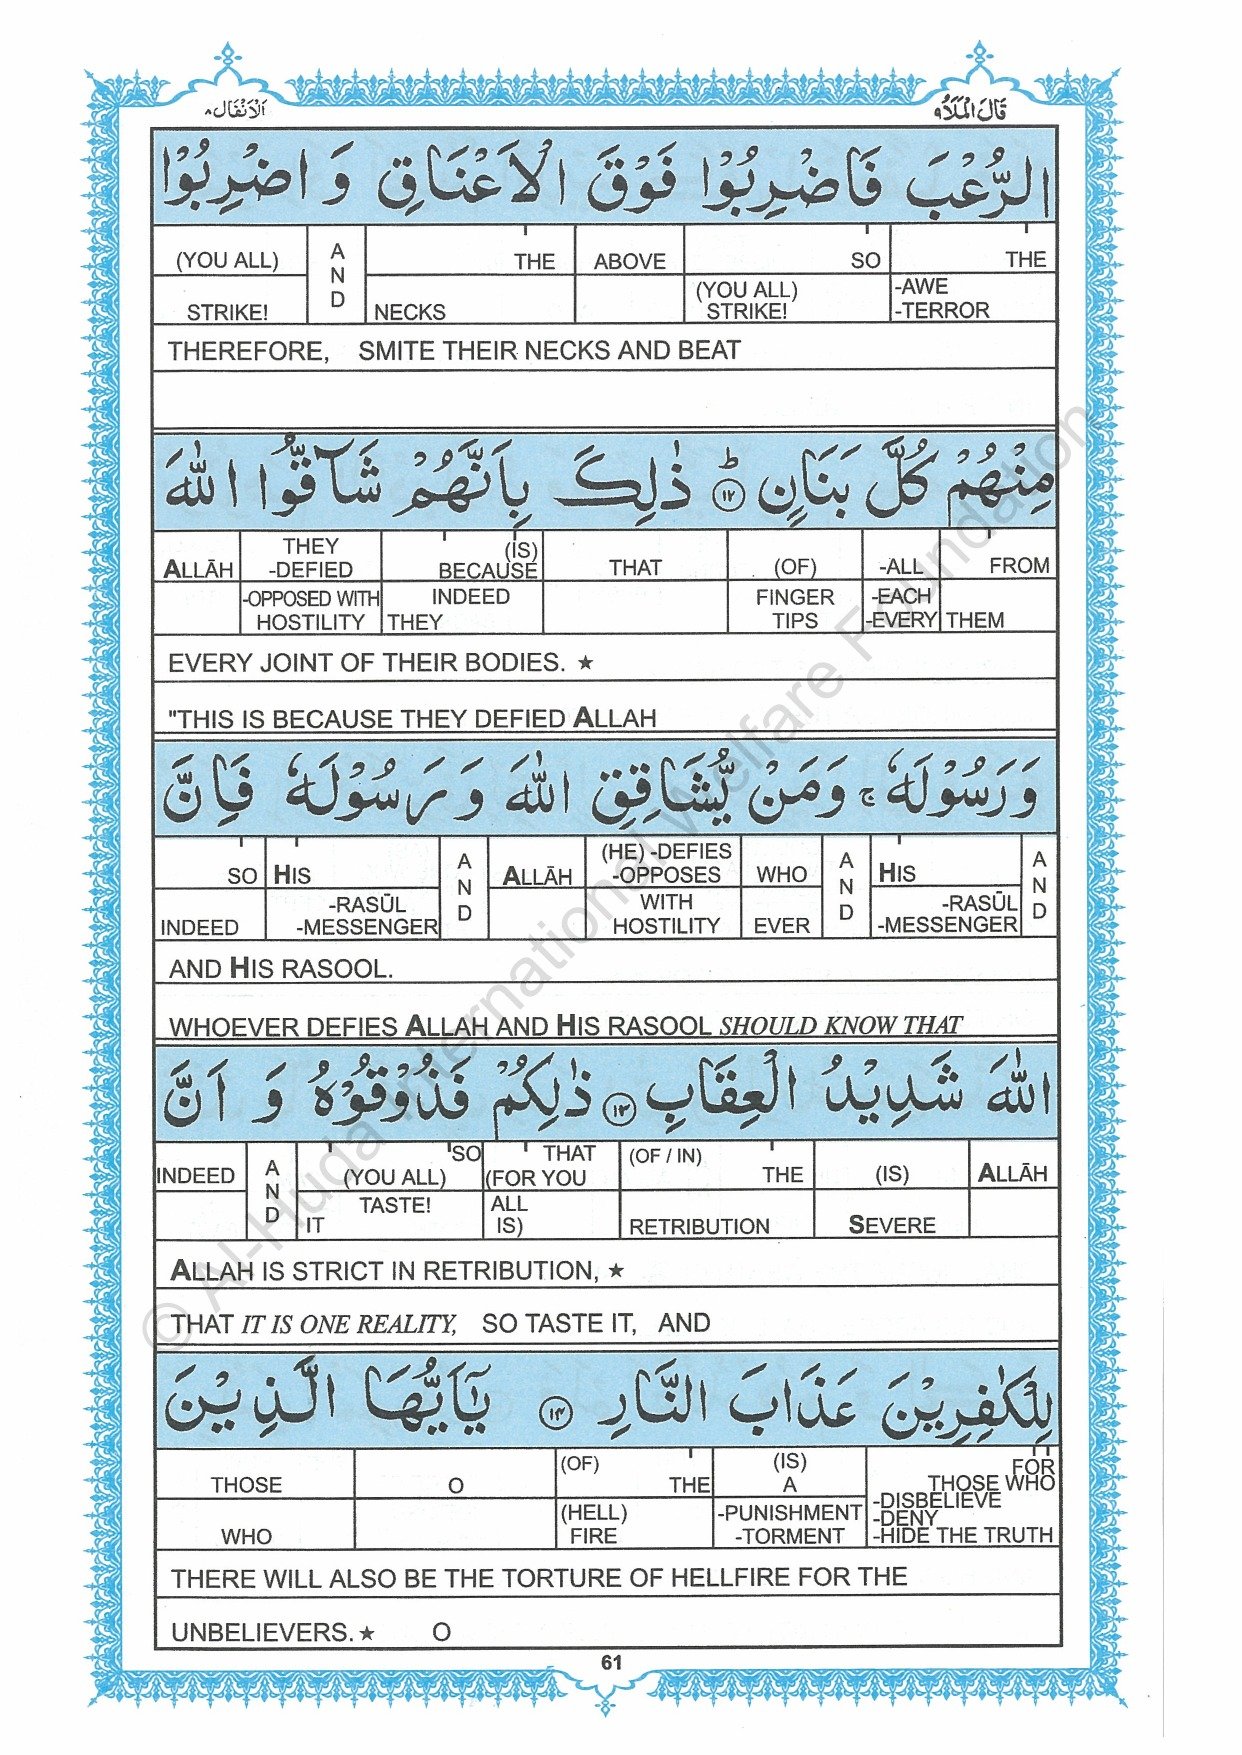 قَالَ الْمَلَاُ ۹
اَلْاَنْفَال ۸
الرُّعْبَ فَاضْرِبُوْا فَوْقَ الْاَعْنَاقِ وَ اضْرِبُوْا
(YOU ALL) AND THE ABOVE SO THE
STRIKE! NECKS (YOU ALL) STRIKE! -AWE -TERROR
THEREFORE, SMITE THEIR NECKS AND BEAT
مِنْهُمْ كُلَّ بَنَانٍ ؕ ۱۲ ذٰلِكَ بِاَنَّهُمْ شَآقُّوا اللّٰهَ
ALLĀH THEY -DEFIED (IS) BECAUSE THAT (OF) -ALL FROM
-OPPOSED WITH HOSTILITY INDEED THEY FINGER TIPS -EACH -EVERY THEM
EVERY JOINT OF THEIR BODIES. ★
"THIS IS BECAUSE THEY DEFIED ALLAH
وَ رَسُوْلَهٗ ۚ وَمَنْ يُّشَاقِقِ اللّٰهَ وَ رَسُوْلَهٗ فَاِنَّ
SO HIS AND ALLĀH (HE) -DEFIES -OPPOSES WHO AND HIS AND
INDEED -RASŪL -MESSENGER WITH HOSTILITY EVER -RASŪL -MESSENGER
AND HIS RASOOL.
WHOEVER DEFIES ALLAH AND HIS RASOOL SHOULD KNOW THAT
اللّٰهَ شَدِيْدُ الْعِقَابِ ۱۳ ذٰلِكُمْ فَذُوْقُوْهُ وَ اَنَّ
INDEED AND SO (YOU ALL) THAT (FOR YOU (OF / IN) THE (IS) ALLĀH
TASTE! IT ALL IS) RETRIBUTION SEVERE
ALLAH IS STRICT IN RETRIBUTION, ★
THAT IT IS ONE REALITY, SO TASTE IT, AND
لِلْكٰفِرِيْنَ عَذَابَ النَّارِ ۱۴ يٰۤاَيُّهَا الَّذِيْنَ
THOSE O (OF) THE (IS) A FOR THOSE WHO
WHO (HELL) FIRE -PUNISHMENT -TORMENT -DISBELIEVE -DENY -HIDE THE TRUTH
THERE WILL ALSO BE THE TORTURE OF HELLFIRE FOR THE
UNBELIEVERS. ★ O
61
© Al-Huda International Welfare Foundation